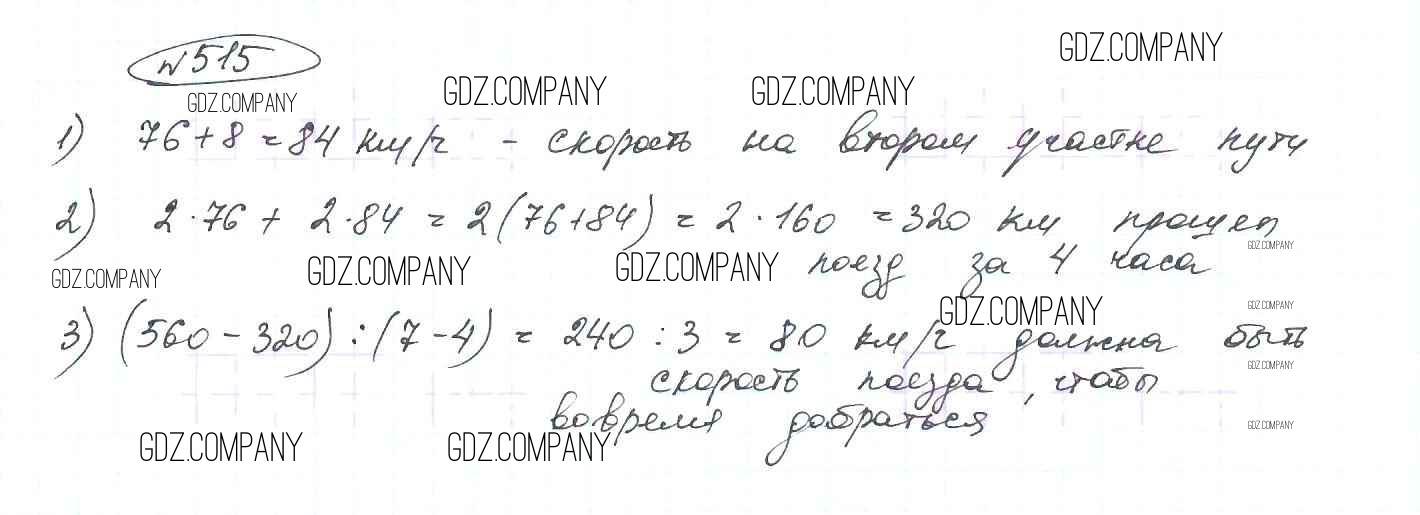 №515
GDZ.COMPANY
GDZ.COMPANY GDZ.COMPANY
GDZ.COMPANY
1) 76+8=84 км/ч - скорость на втором участке пути
2) 2·76 + 2·84 = 2(76+84) = 2·160 = 320 км прошел
GDZ.COMPANY
поезд за 4 часа
GDZ.COMPANY GDZ.COMPANY GDZ.COMPANY
GDZ.COMPANY GDZ.COMPANY
3) (560-320):(7-4) = 240:3 = 80 км/ч должна быть
GDZ.COMPANY
скорость поезда, чтобы
вовремя добраться
GDZ.COMPANY
GDZ.COMPANY GDZ.COMPANY